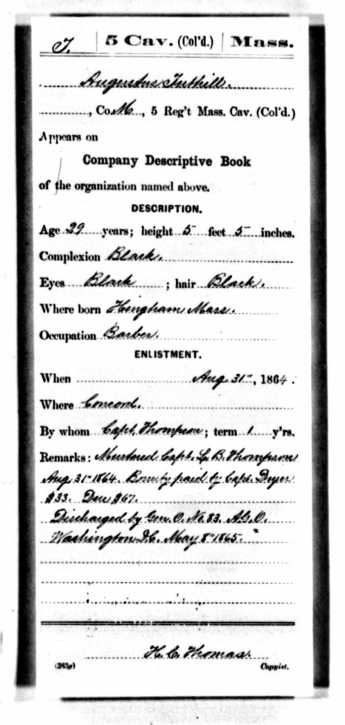 T. | 5 Cav. (Col'd.) | Mass.
Augustus Tuthill.
, Co. M, 5 Reg't Mass. Cav. (Col'd.)
Appears on
Company Descriptive Book
of the organization named above.
DESCRIPTION.
Age 29 years; height 5 feet 5 inches.
Complexion Black.
Eyes Black; hair Black.
Where born Hingham Mass.
Occupation Barber.
ENLISTMENT.
When Aug 31st, 1864.
Where Concord.
By whom Capt. Thompson; term 1 y'rs.
Remarks: Mustered Capt. L. B. Thompson
Aug 31st 1864. Bounty paid by Capt. Dryer
$33. Due $67.
Discharged by Gen. O. No. 83. A.G.O.
Washington D.C. May 8th 1865."
H. C. Thomas
(383g) Copyist.